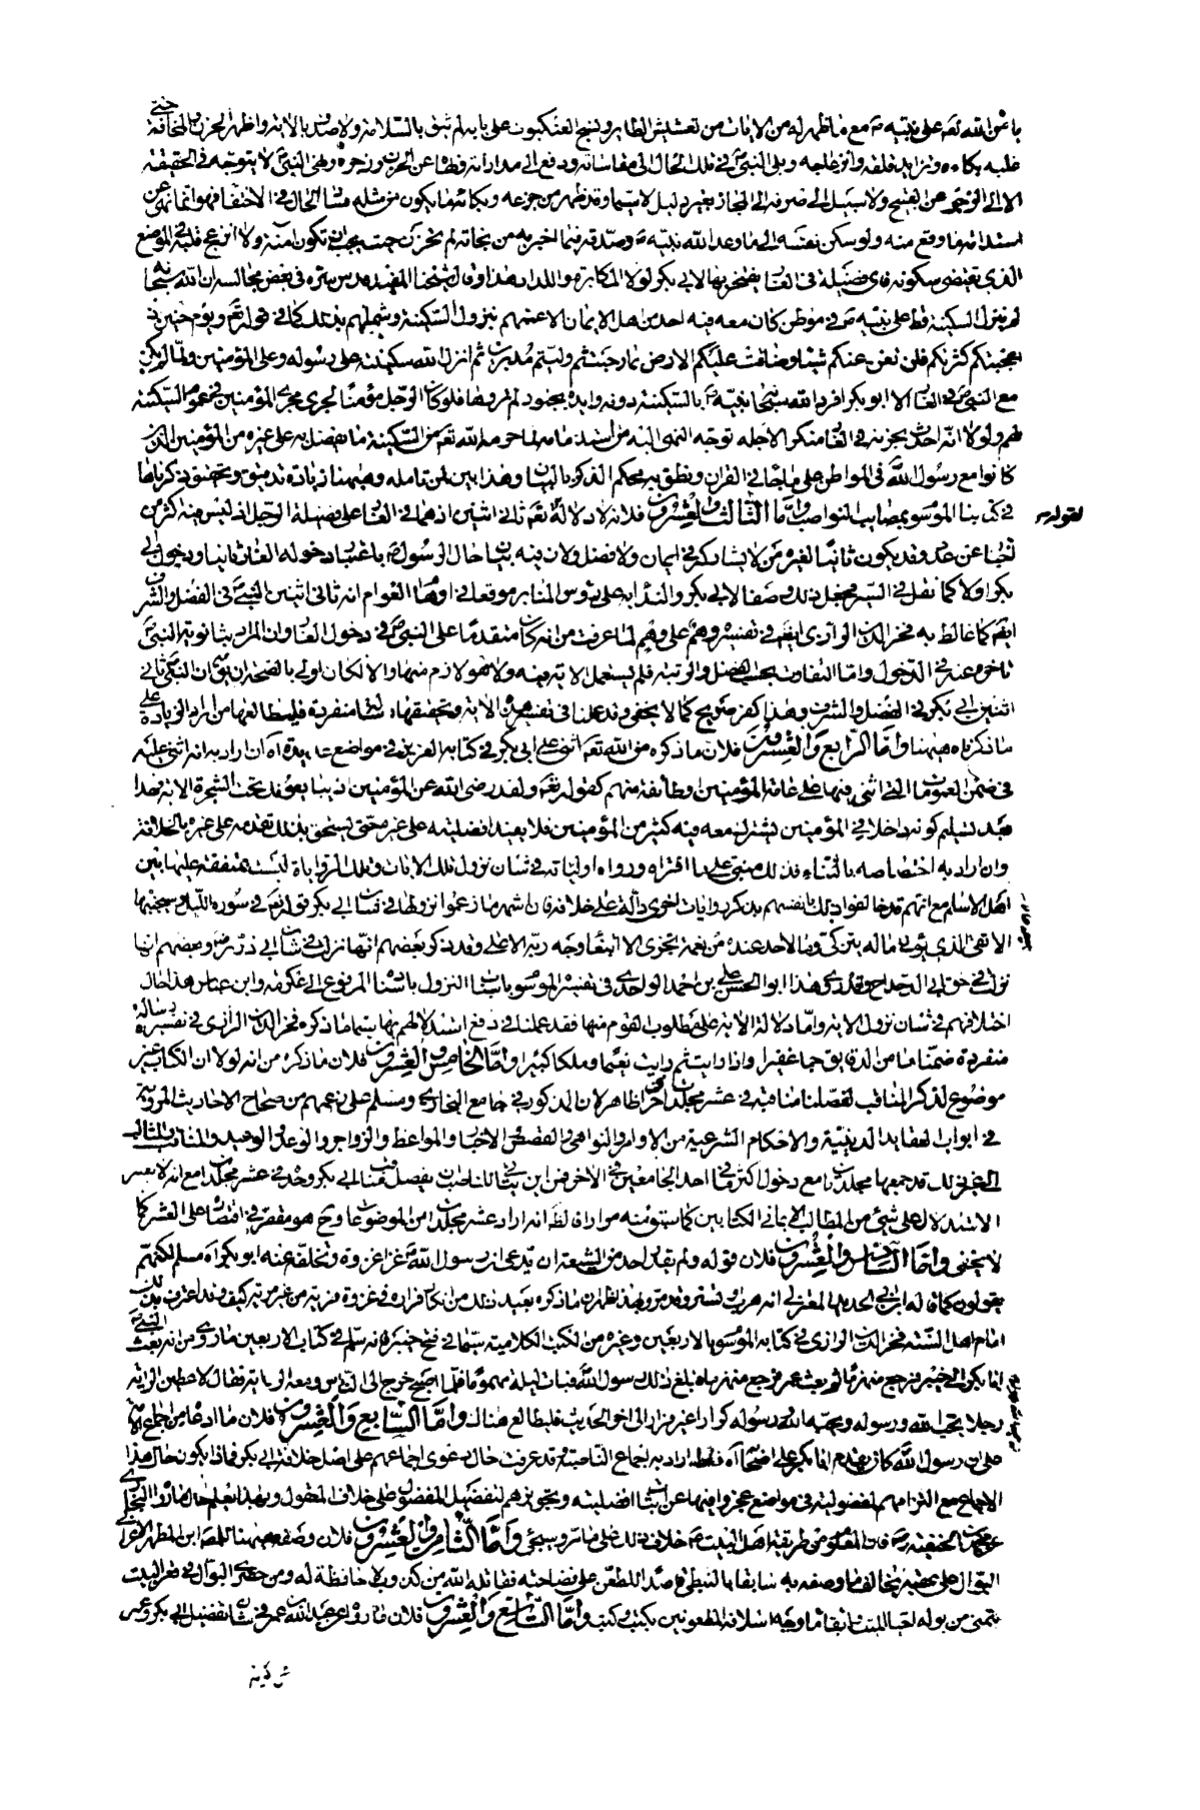 بامن الله تعم على نبيه ص مع ما ظهر له من الايات من تعشيش الطاير ونسج العنكبوت على بابه لم يثق بالسلامة ولا صدق بالاية واظهر الحزن والمخافة حتى
غلبه بكاءه وتزايد قلقه وانزعاجه وبلى النبي ص في تلك الحال الى مقاساته ودفع الى مداراته ونهاه عن الحزن وزجره ونهى النبي ص لا يتوجه في الحقيقة
الا الى الزجر عن القبيح ولا سبيل الى صرفه الى المجاز بغير دليل لا سيما وقد ظهر من جزعه وبكائه ما يكون من مثله فساد الحال في الاختفاء فهو انما نهى عن
استدامة ما وقع منه ولو سكن نفسه الى ما وعد الله نبيه ص وصدقه فيما اخبر به من نجاته لم يحزن حيث يجب ان تكون امنة ولا انزعج قلبه في الموضع
الذي يقتضي سكونه فاى فضيلة في الغار يفتخر بها لابي بكر لولا المكابرة واللداد هذا وقال شيخنا المفيد قدس سره في بعض مجالسه ان الله سبحانه
لم ينزل السكينة قط على نبيه ص في موطن كان معه فيه احد من اهل الايمان الا عمهم بنزول السكينة وشملهم بذلك كما في قوله تعم ويوم حنين اذ
اعجبتكم كثرتكم فلن تغن عنكم شيئا وضاقت عليكم الارض بما رحبت ثم وليتم مدبرين ثم انزل الله سكينته على رسوله وعلى المؤمنين ولما لم يكن
مع النبي ص في الغار الا ابو بكر افرد الله سبحانه نبيه ص بالسكينة دونه وايده بجنود لم تروها فلو كان الرجل مؤمنا لجرى مجرى المؤمنين في عموم السكينة
لهم ولولا انه احدث بحزنه في الغار منكرا لاجله توجه النهى اليه من استدامته لما حرمه الله تعم من السكينة ما تفضل به على غيره من المؤمنين الذين
كانوا مع رسول الله في المواطن على ما جاء في القران ونطق به محكم الذكر بالبيان وهذا بين لمن تامله وههنا زيادة تدقيق وتحقيق ذكرناها
في كتابنا الموسوم بمصائب النواصب واما الثالث والعشرون فلانه لا دلالة لقوله تعم ثاني اثنين اذ هما في الغار على فضيلة الرجل اذ ليس فيه اكثر من
اخبار عن عدد وقد يكون ثانيا لغيره من لا يشاركه في ايمان ولا فضل ولان فيه بيان حال الرسول ص باعتبار دخوله الغار ثانيا ودخول ابي
بكر اولا كما نقل في السير فجعل ذلك وصفا لابي بكر والنداء به على رؤس المنابر موقعا في اوهام العوام انه ثاني اثنين النبي ص في الفضل والشرف
ايضا كما غالط به فخر الدين الرازي ايضا في تفسيره وهم على وهم لما عرفت من انه كان متقدما على النبي ص في دخول الغار وان المراد بثانوية النبي ص
تاخره عنه في الدخول واما التفاوت بحسب الفضل والرتبة فلم يستعمل الاية فيه ولا هو لازم منها والا لكان اولى بالصحة ان يقول ان النبي ص ثاني
اثنين ابي بكر في الفضل والشرف وهذا كفر صريح كما لا يخفى وقد علنا في تفسير هذه الاية وتحقيقها رسالة منفردة فليطالعها من اراد الزيادة على
ما ذكرناه ههنا واما الرابع والعشرون فلان ما ذكره من الله تعم اثنى على ابي بكر في كتابه العزيز في مواضع عديدة اه ان اراد به انه اثنى عليه
في ضمن العمومات التي اثنى فيها على عامة المؤمنين او طائفة منهم كقوله تعم ولقد رضى الله عن المؤمنين اذ يبايعونك تحت الشجرة الاية فهذا
بعد تسليم كونه داخلا في المؤمنين يشترك معه فيه كثير من المؤمنين فلا يفيد افضليته على غيره حتى يستحق بذلك تقدمه على غيره بالخلافة
وان اراد به اختصاصه بالثناء فذلك مبنى على ما افتراه ورواه اولياؤه في شان نزول تلك الايات وتلك الروايات ليست بمتفقة عليها بين
اهل الاسلام مع انهم قد خالفوا ذلك بانفسهم بذكر روايات اخرى دالة على خلافه فان اشهر ما زعموا نزولها في شان ابي بكر قوله تعم في سورة الليل وسيجنبها
الاتقى الذي يؤتى ماله يتزكى وما لاحد عنده من نعمة تجزى الا ابتغاء وجه ربه الاعلى وقد ذكر بعضهم انها نزلت في شان ابي ذر رض وبعضهم انها
نزلت في حق ابي الدحداح وقد ذكر هذا ابو الحسن علي بن احمد الواحدي في تفسيره الموسوم باسباب النزول باسناده المرفوع الى عكرمة وابن عباس هذا حال
اختلافهم في شان نزول الاية واما دلالة الاية على مطلوب القوم منها فقد علنا في دفع استدلالهم بها سيما ما ذكره فخر الدين الرازي في تفسيره رسالة
منفردة ضمنا ما من الدقايق جما غفيرا واذا رايت ثم رايت نعيما وملكا كبيرا واما الخامس والعشرون فلان ما ذكره من انه لولا ان الكتاب غير
موضوع لذكر المناقب لفصلنا مناقبه في عشر مجلدات اخرى ظاهر لان المذكور في جامع البخاري ومسلم على زعمهم من صحاح الاحاديث المروية
في ابواب العقايد الدينية والاحكام الشرعية من الاوامر والنواهي والقصص والاخبار والمواعظ والزواجر والوعد والوعيد والمناقب والمثالب
الى غير ذلك قد جمعها مجلدين مع دخول اكثر ما في احد الجامعين في الاخر فمن اين يتاتى للناصب تفصيل مناقب ابي بكر وحده في عشر مجلدات مع انه لا يتيسر
الاستدلال على شيء من المطالب الا باتي الكتابين كما ستوئمنه مرارا نعم لعله اراد عشر مجلدات من الموضوعات وح هو مقصر في اقتصاره على العشر كما
لا يخفى واما السادس والعشرون فلان قوله ولم يقل احد من الشيعة ان يدعى ان رسول الله ص غزا غزوة وتخلف عنه ابو بكر اه مسلم لكنهم
يقولون كما قاله ابن ابي الحديد المعتزلي انه هرب وتستر وقد مر وبهذا ظهر ان ما ذكره بعيد ذلك من انكار فراره في غزوة فرية من غير مرية كيف وقد اعترف بذلك
امام اهل السنة فخر الدين الرازي في كتابه الموسوم بالاربعين وغيره من الكتب الكلامية سيما في فتح خيبر فانه سلم في كتاب الاربعين ما روى من انه بعث النبي ص
ابا بكر الى خيبر فرجع منهزما ثم بعث عمر فرجع منهزما وبلغ ذلك رسول الله ص فبات ليلة مهموما فلما اصبح خرج الى الناس ومعه الراية فقال لاعطين الراية
رجلا يحب الله ورسوله ويحبه الله ورسوله كرارا غير فرار الى اخر الحديث فليطالع هناك واما السابع والعشرون فلان ما ادعاه من اجماع الامة
على ان رسول الله ص كان يقدم ابا بكر على اصحابه اه فقد اراد به اجماع الناصبة وقد عرفت حال دعوى اجماعهم على اصل خلافة ابي بكر فماذا يكون حال هذا
الاجماع مع التزامهم لمفضوليته في مواضع عجزوا فيها عن بيان افضليته وتجويزهم لتفضيل المفضول على خلاف المعقول وبهذا يعلم حال ما رواه البخاري
عن محمد بن الحنفية رض فان المعلوم من طريقة اهل البيت ص خلاف ذلك على ما مر وسيجيء واما الثامن والعشرون فلان وصفه ههنا للمص ابن المطهر بالاعرابي
البوال على عقبيه يخالف ما وصفه به سابقا بالنبطي قاصدا للطعن على فصاحته فقاتله الله من كذوب لا حافظة له ومن حق البوال في قعر البيت
يتمنى من بوله لحية الميت اتقاء ما وجه اسلافه الملعونين بكيت وكيت واما التاسع والعشرون فلان ما رواه عن عبد الله بن عمر في شان تفضيل ابي بكر وعمر